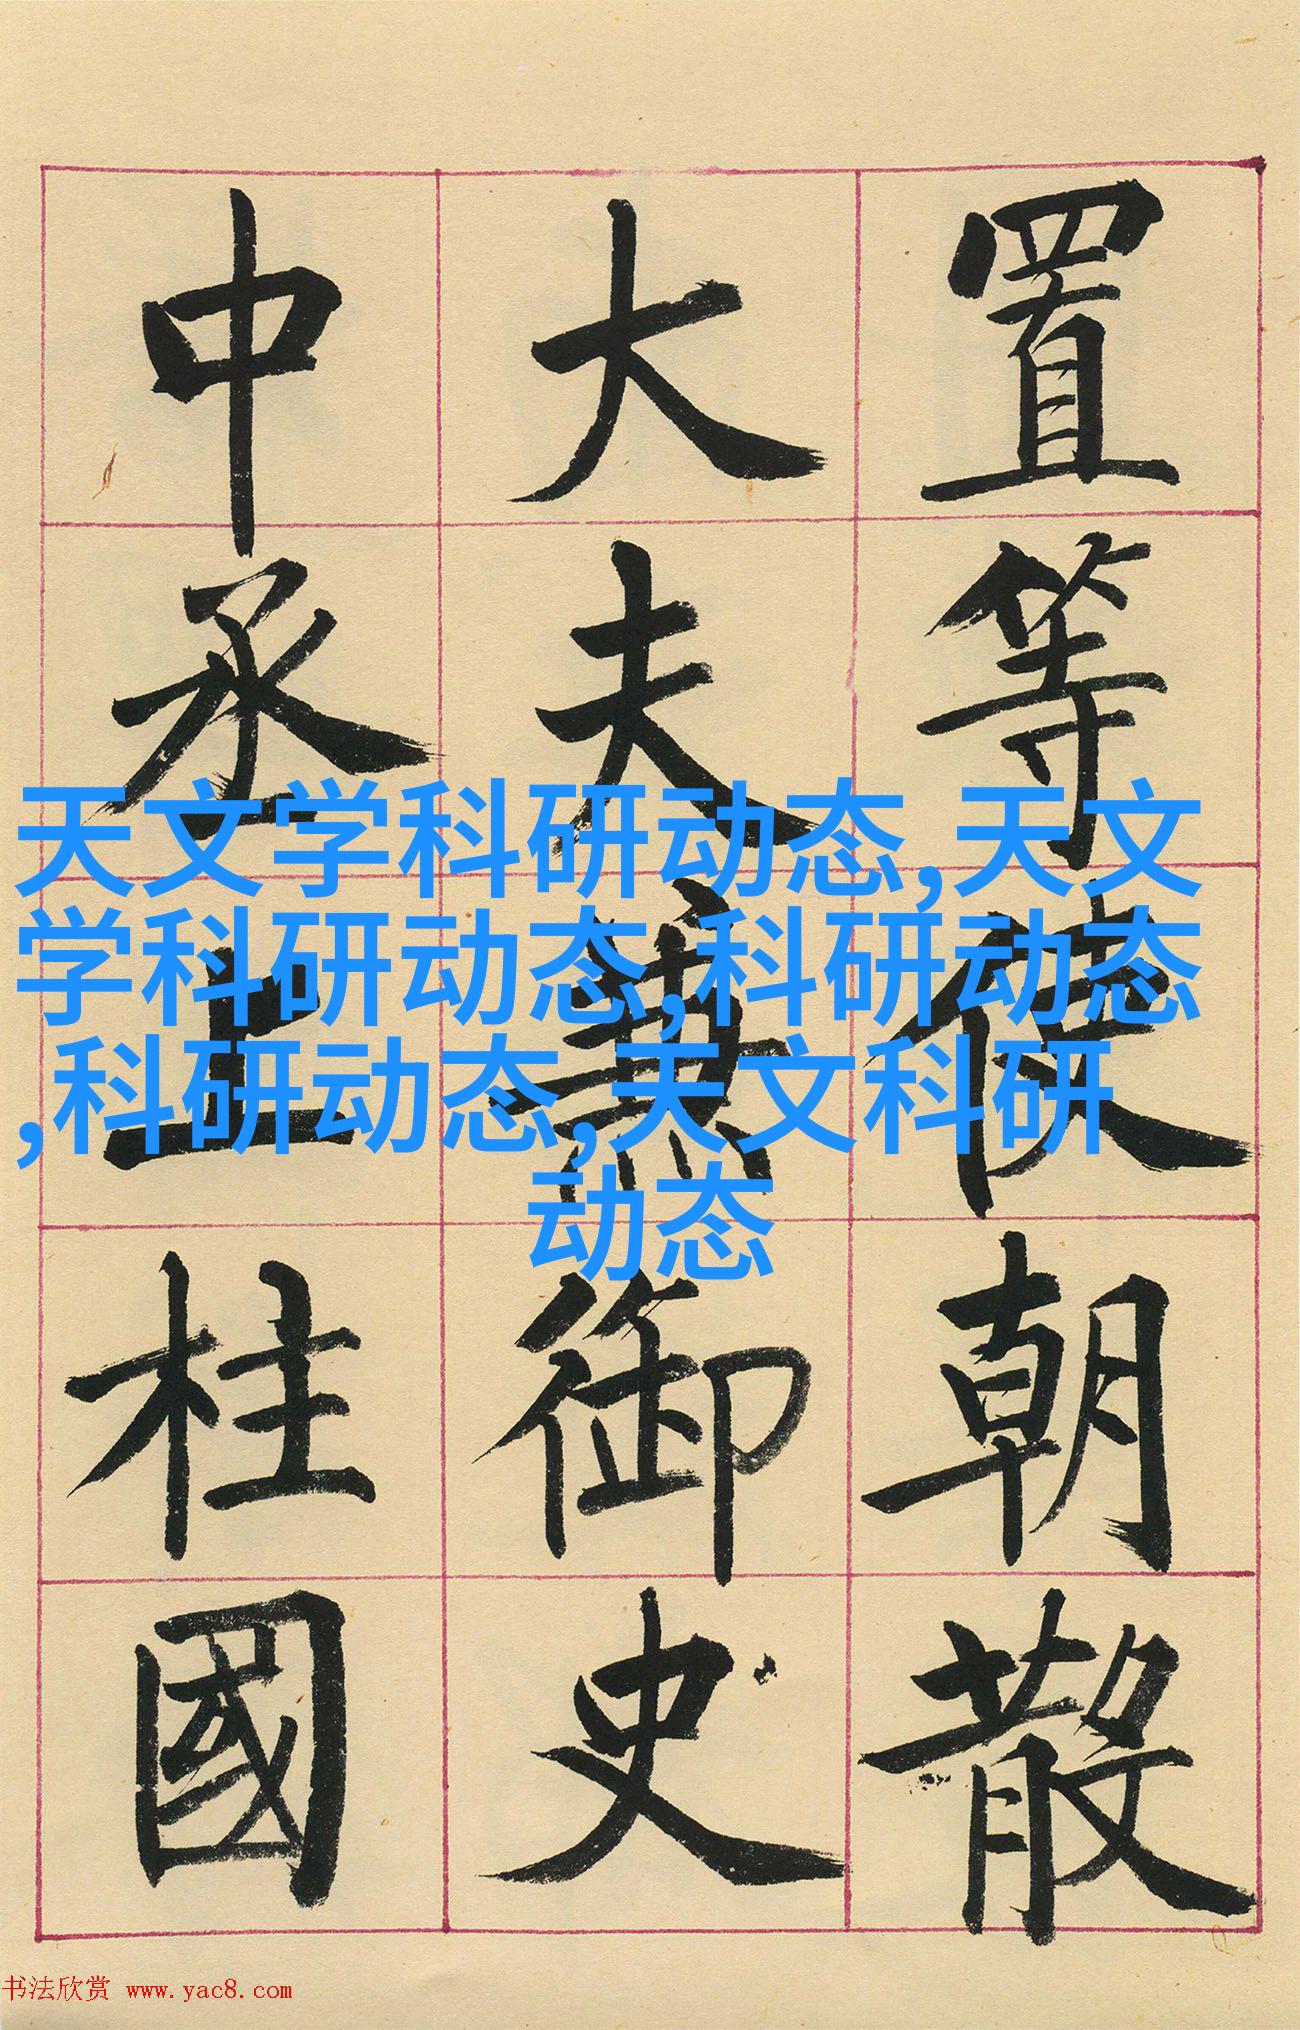 置等使朝散
大夫兼御史
中丞上柱國
天文学科研动态,天文
学科研动态,科研动态
,科研动态,天文科研
动态
书法欣赏 www.yac8.com